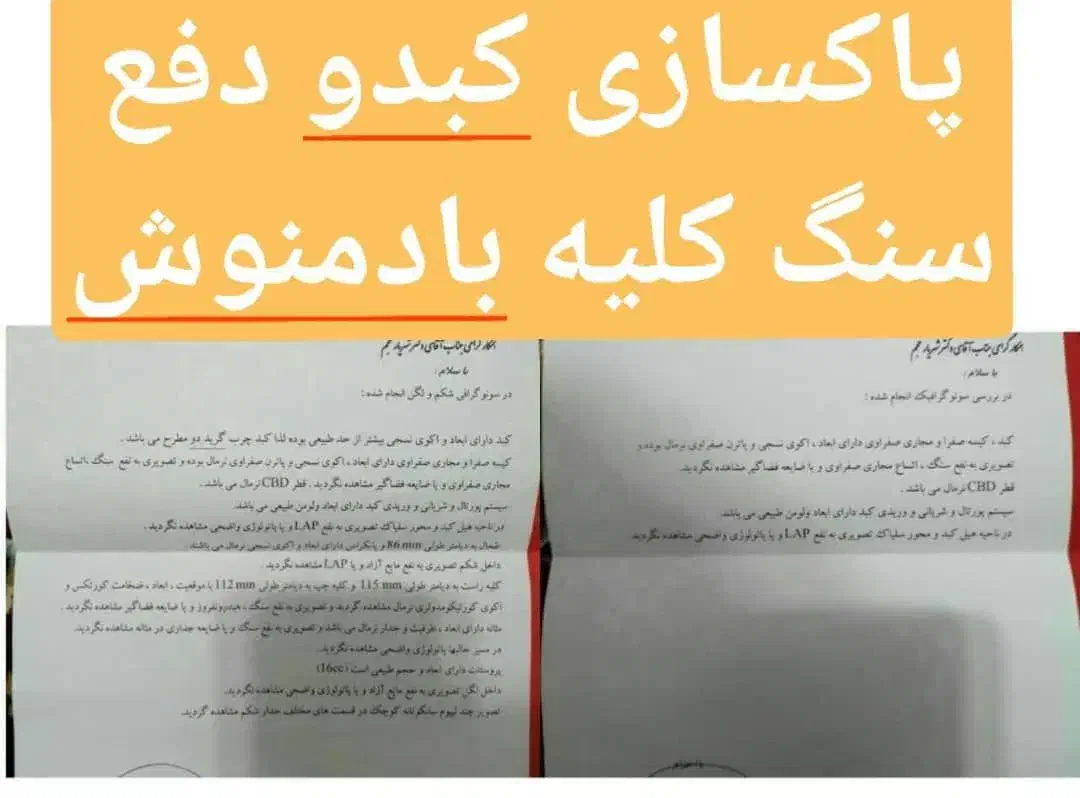 پاکسازی کبدو دفع
سنگ کلیه بادمنوش
همکار گرامی جناب آقای دکتر شهریار عجم
با سلام :
در بررسی سونوگرافیک انجام شده :
کبد ، کیسه صفرا و مجاری صفراوی دارای ابعاد ، اکوی نسجی و پاترن صفراوی نرمال بوده و
تصویری به نفع سنگ ، اتساع مجاری صفراوی و یا ضایعه فضاگیر مشاهده نگردید.
قطر CBD نرمال می باشد .
سیستم پورتال و شریانی و وریدی کبد دارای ابعاد ولومن طبیعی می باشد.
در ناحیه هیل کبد و محور سلیاک تصویری به نفع LAP و یا پاتولوژی واضحی مشاهده نگردید
با احترام
همکار گرامی جناب آقای دکتر شهریار عجم
با سلام :
در سونوگرافی شکم و لگن انجام شده :
کبد دارای ابعاد و اکوی نسجی بیشتر از حد طبیعی بوده لذا کبد چرب گرید دو مطرح می باشد .
کیسه صفرا و مجاری صفراوی دارای ابعاد ، اکوی نسجی و پاترن صفراوی نرمال بوده و تصویری به نفع سنگ ،اتساع
مجاری صفراوی و یا ضایعه فضاگیر مشاهده نگردید . قطر CBD نرمال می باشد .
سیستم پورتال و شریانی و وریدی کبد دارای ابعاد ولومن طبیعی می باشند.
در ناحیه هیل کبد و محور سلیاک تصویری به نفع LAP و یا پاتولوژی واضحی مشاهده نگردید .
طحال به دیامتر طولی 86 mm و پانکراس دارای ابعاد و اکوی نسجی نرمال می باشند .
داخل شکم تصویری به نفع مایع آزاد و یا LAP مشاهده نگردید .
کلیه راست به دیامتر طولی 115 mm و کلیه چپ به دیامتر طولی 112 mm با موقعیت ، ابعاد ، ضخامت کورتکس و
اکوی کورتیکومدولری نرمال مشاهده گردید و تصویری به نفع سنگ ، هیدرونفروز و یا ضایعه فضاگیر مشاهده نگردید .
مثانه دارای ابعاد ، ظرفیت و جدار نرمال می باشد و تصویری به نفع سنگ و یا ضایعه جداری در مثانه مشاهده نگردید.
در مسیر حالبها پاتولوژی واضحی مشاهده نگردید.
پروستات دارای ابعاد و حجم طبیعی است (16cc)
داخل لگن تصویری به نفع مایع آزاد و یا پاتولوژی واضحی مشاهده نگردید.
تصویر چند لیپوم سانگونانه کوچک در قسمت های مختلف جدار شکم مشاهده گردید.